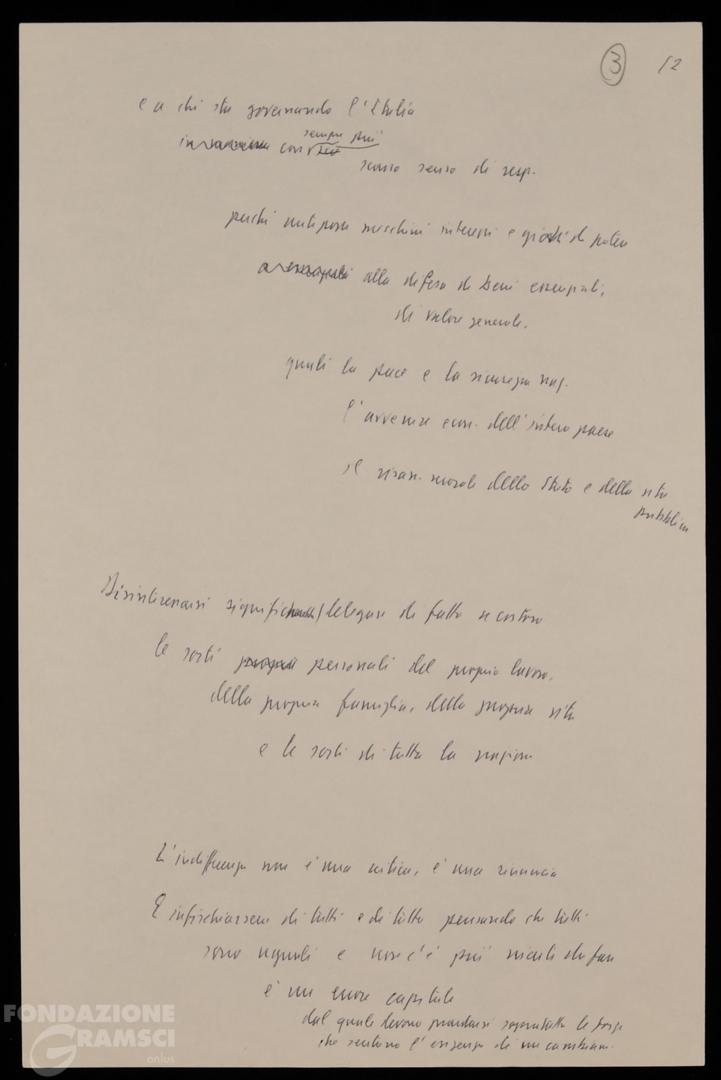 3
12
e a chi sta governando l'Italia
con
sempre più
scarso senso di resp.
perché antepone meschini interessi e giochi di potere
alla difesa di beni essenziali,
di valore generale.
quali la pace e la sicurezza naz.
l'avvenire econ. dell'intero paese
il risan. morale dello Stato e della vita
pubblica
Disinteressarsi significa delegare di fatto a costoro
le sorti personali del proprio lavoro,
della propria famiglia, della propria vita
e le sorti di tutta la nazione
L'indifferenza non è una critica, è una rinuncia
E infischiarsene di tutti e di tutto pensando che tutti
sono uguali e non c'è più niente da fare
è un errore capitale
dal quale devono guardarsi soprattutto le forze
che sentono l'esigenza di un cambiam.
FONDAZIONE
GRAMSCI
onlus